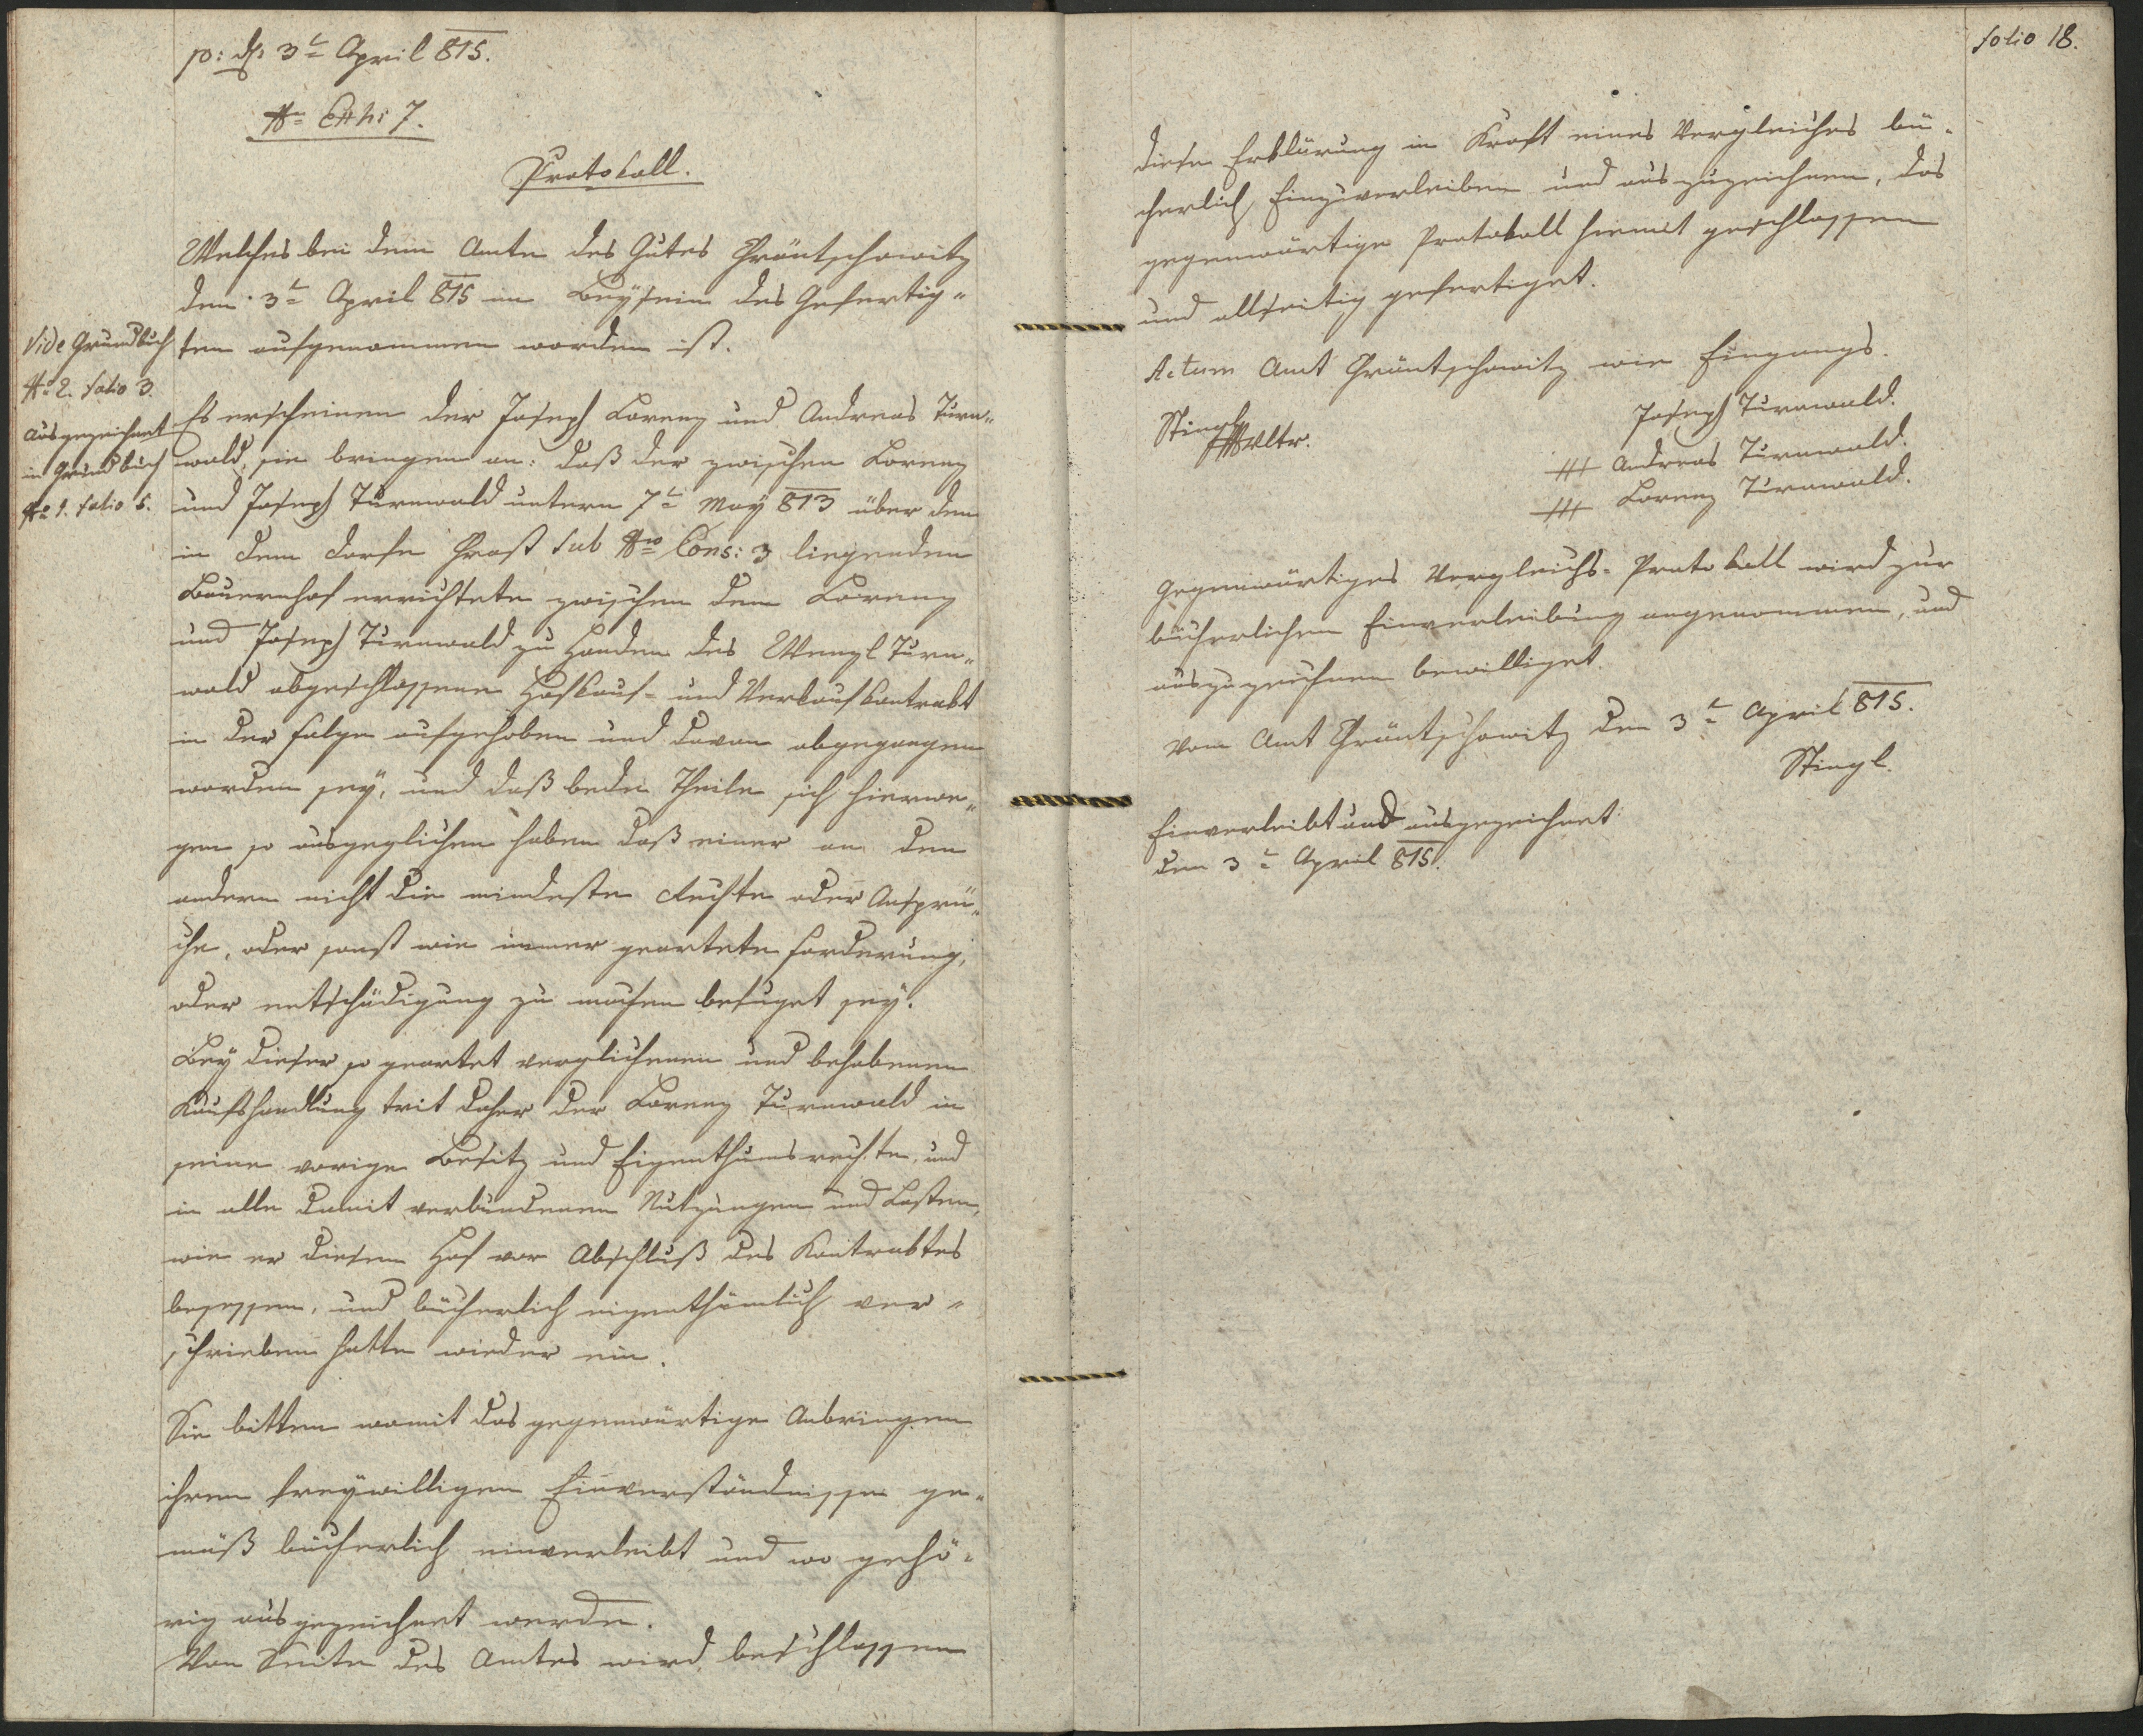 p: ds 3t April 815.
No Exhi 7.
Protokoll.
Welches bei dem Amte des Gutes Chräntschowitz
den 3t April 815 im Beysein des Gefertig"
ten aufgenommen worden ist.
Vide Grundbuch
No 2. folio 3.
ausgezeichnet
in Grundbuch
No 1. folio 5.
Es erscheinen der Joseph Lorenz und Andreas Turn"
wald, sie bringen an: daß der zwischen Lorenz
und Joseph Turnwald unterm 7t May 813 über den
in dem Dorfe Prost sub Nro Cons: 3 liegenden
Bauernhof errichtete zwischen dem Lorenz
und Joseph Turnwald zu Handen des Wenzl Turn"
wald abgeschlossene Hofkauf- und Verkaufkontrakt
in der Folge aufgehoben und davon abgegangen
worden sey, und daß bede Theile sich hierwe"
gen so ausgeglichen haben daß einer an den
andern nicht die mindeste Rechte oder Ansprü"
che, oder sonst wie immer geartete Forderung,
oder entschädigung zu machen befuget sey.
Bey dieser so geartet verglichenen und behobenen
Kaufshandlung trit daher der Lorenz Turnwald in
seine vorige Besitz und Eigenthumsrechte, und
in alle damit verbundenen Nutzungen und Lasten,
wie er diesen Hof vor Abschluß des Kontraktes
besessen, und bücherlich eigenthümlich ver"
schrieben hatte wieder ein.
Sie bitten womit das gegenwärtige Anbringen
ihrem freywilligen Einverständnisse ge"
mäß bücherlich einverleibt und wo gehö"
rig ausgezeichnet werde.
Von Seite des Amtes wird beschlossen
folio 18.
diese Erklärung in Kraft eines Vergleiches bü"
cherlich Einzuverleiben und auszuzeichnen, das
gegenwärtige Protokoll hiemit geschlossen
und allseitig gefertiget.
Actum Amt Chräntschowitz wie Eingangs.
Stingl
Vwltr.
Joseph Turnwald.
+++ Andreas Turnwald.
+++ Lorenz Turnwald.
Gegenwärtiges Vergleichs-Protokoll wird zur
bücherlichen Einverleibung angenommen, und
auszuzeichnen bewilliget.
Vom Amt Chräntschowitz den 3t April 815.
Stingl.
Einverleibt und ausgezeichnet
den 3t April 815.